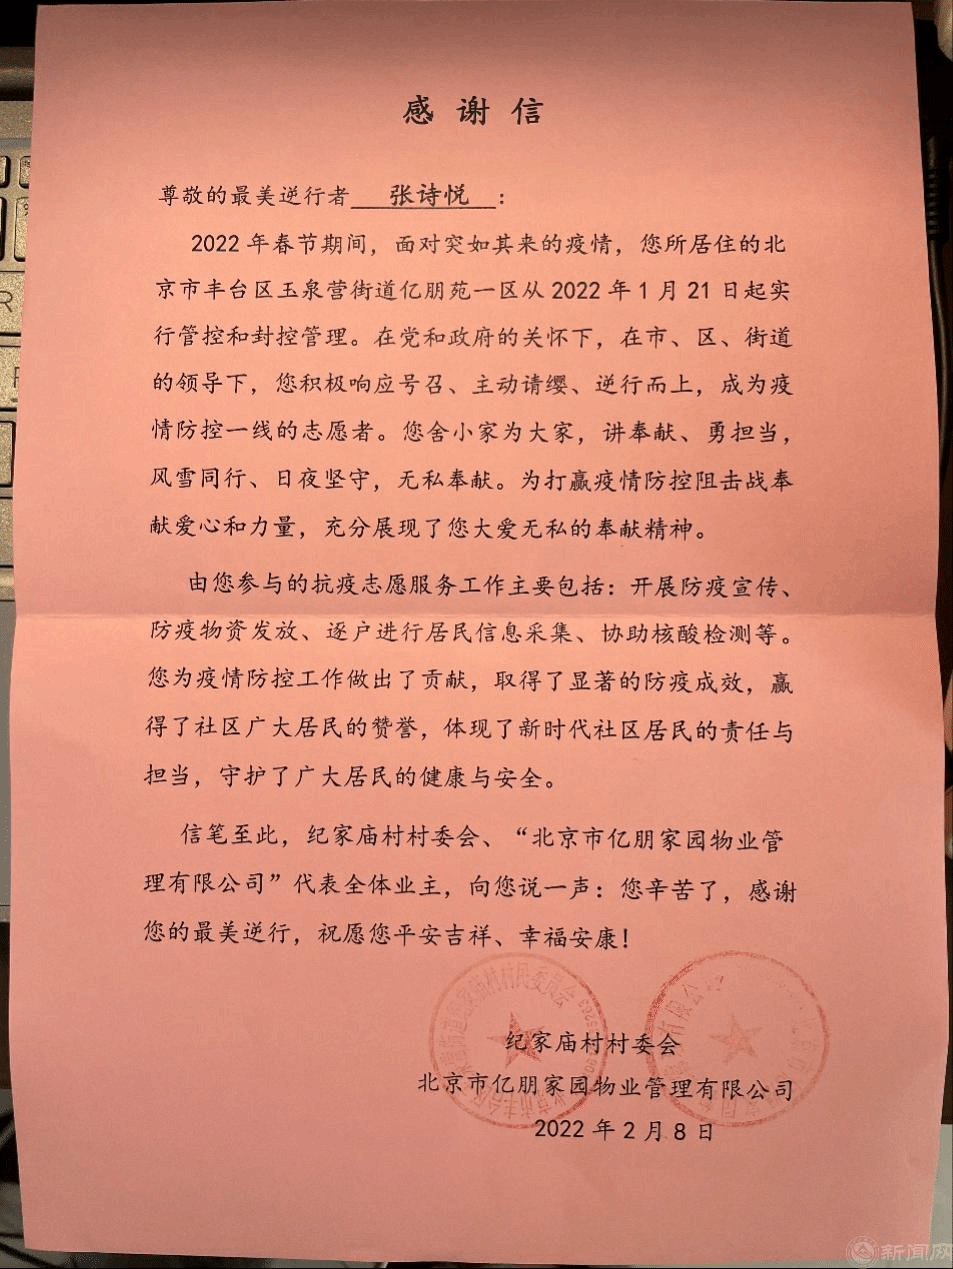 感谢信
尊敬的最美逆行者 张诗悦 ：
2022 年春节期间，面对突如其来的疫情，您所居住的北
京市丰台区玉泉营街道亿朋苑一区从 2022 年 1 月 21 日起实
行管控和封控管理。在党和政府的关怀下，在市、区、街道
的领导下，您积极响应号召、主动请缨、逆行而上，成为疫
情防控一线的志愿者。您舍小家为大家，讲奉献、勇担当，
风雪同行、日夜坚守，无私奉献。为打赢疫情防控阻击战奉
献爱心和力量，充分展现了您大爱无私的奉献精神。
由您参与的抗疫志愿服务工作主要包括：开展防疫宣传、
防疫物资发放、逐户进行居民信息采集、协助核酸检测等。
您为疫情防控工作做出了贡献，取得了显著的防疫成效，赢
得了社区广大居民的赞誉，体现了新时代社区居民的责任与
担当，守护了广大居民的健康与安全。
信笔至此，纪家庙村村委会、“北京市亿朋家园物业管
理有限公司”代表全体业主，向您说一声：您辛苦了，感谢
您的最美逆行，祝愿您平安吉祥、幸福安康！
纪家庙村村委会
北京市亿朋家园物业管理有限公司
2022 年 2 月 8 日
新闻网